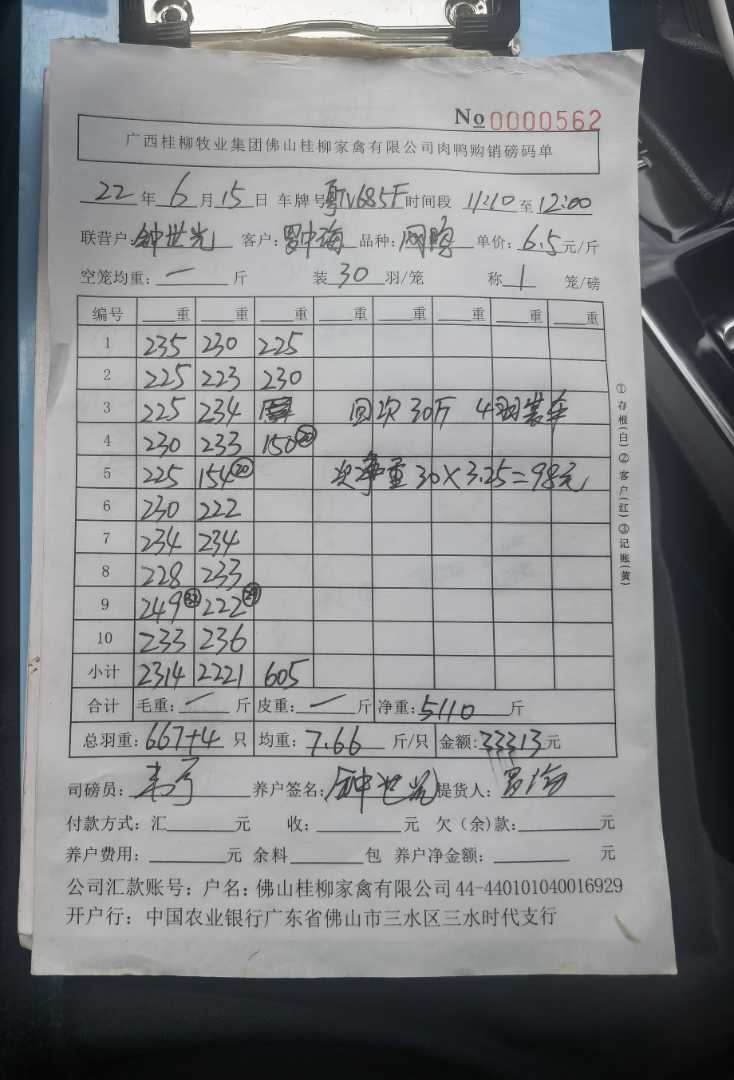 No 0000562
广西桂柳牧业集团佛山桂柳家禽有限公司肉鸭购销磅码单
22年6月15日 车牌号粤TV685F时间段 11:10至12:00
联营户:钟世光 客户: 罗中海 品种: 单价: 6.5元/斤
空笼均重: 一 斤 装30羽/笼 称1笼/磅
编号 重 重 重 重 重 重 重 重
1 235 230 225
2 225 223 230
3 225 234 回次 30斤 4羽装车
4 230 233 150⑳
5 225 154⑳ 次净重 30×3.25=98元
6 230 222
7 234 234
8 228 233
9 249 222
10 233 236
小计 2314 2221 605
合计 毛重: 一 斤 皮重: 一 斤 净重: 5110斤
总羽重: 667+4 只 均重: 7.66 斤/只 金额: 33313元
司磅员: 养户签名: 钟世光 提货人: 罗海
付款方式: 汇 元 收: 元 欠(余)款: 元
养户费用: 元 余料 包 养户净金额: 元
公司汇款账号: 户名: 佛山桂柳家禽有限公司 44-440101040016929
开户行: 中国农业银行广东省佛山市三水区三水时代支行
①存根(白)②客户(红)③记账(黄)